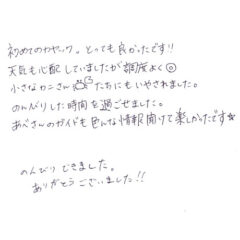 初めてのカヤック。とっても良かったです!!
天気も心配していましたが調度よく◎
小さなカニさんたちにもいやされました。
のんびりした時間を過ごせました。
あべさんのガイドも色んな情報聞けて楽しかったです☆
のんびりできました。
ありがとうございました!!